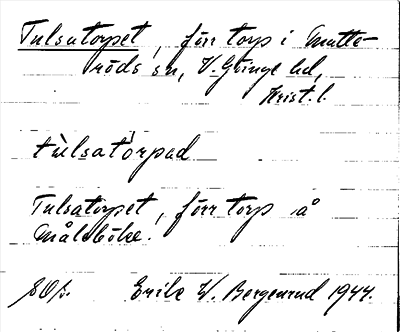 Tulsatorpet, förr torp i Matte-
röds sn, V. Göinge hd,
Krist. l.
tùlsatòrpad
Tulsatorpet, förr torp å
Måleböke.
SOp. Erik W. Bergenrud 1944.